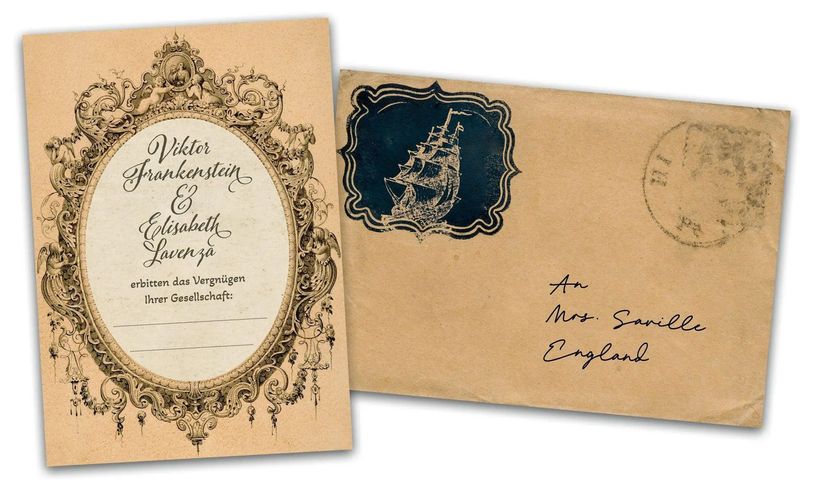 Viktor
Frankenstein
&
Elisabeth
Lavenza
erbitten das Vergnügen
Ihrer Gesellschaft:
An
Mrs. Saville
England